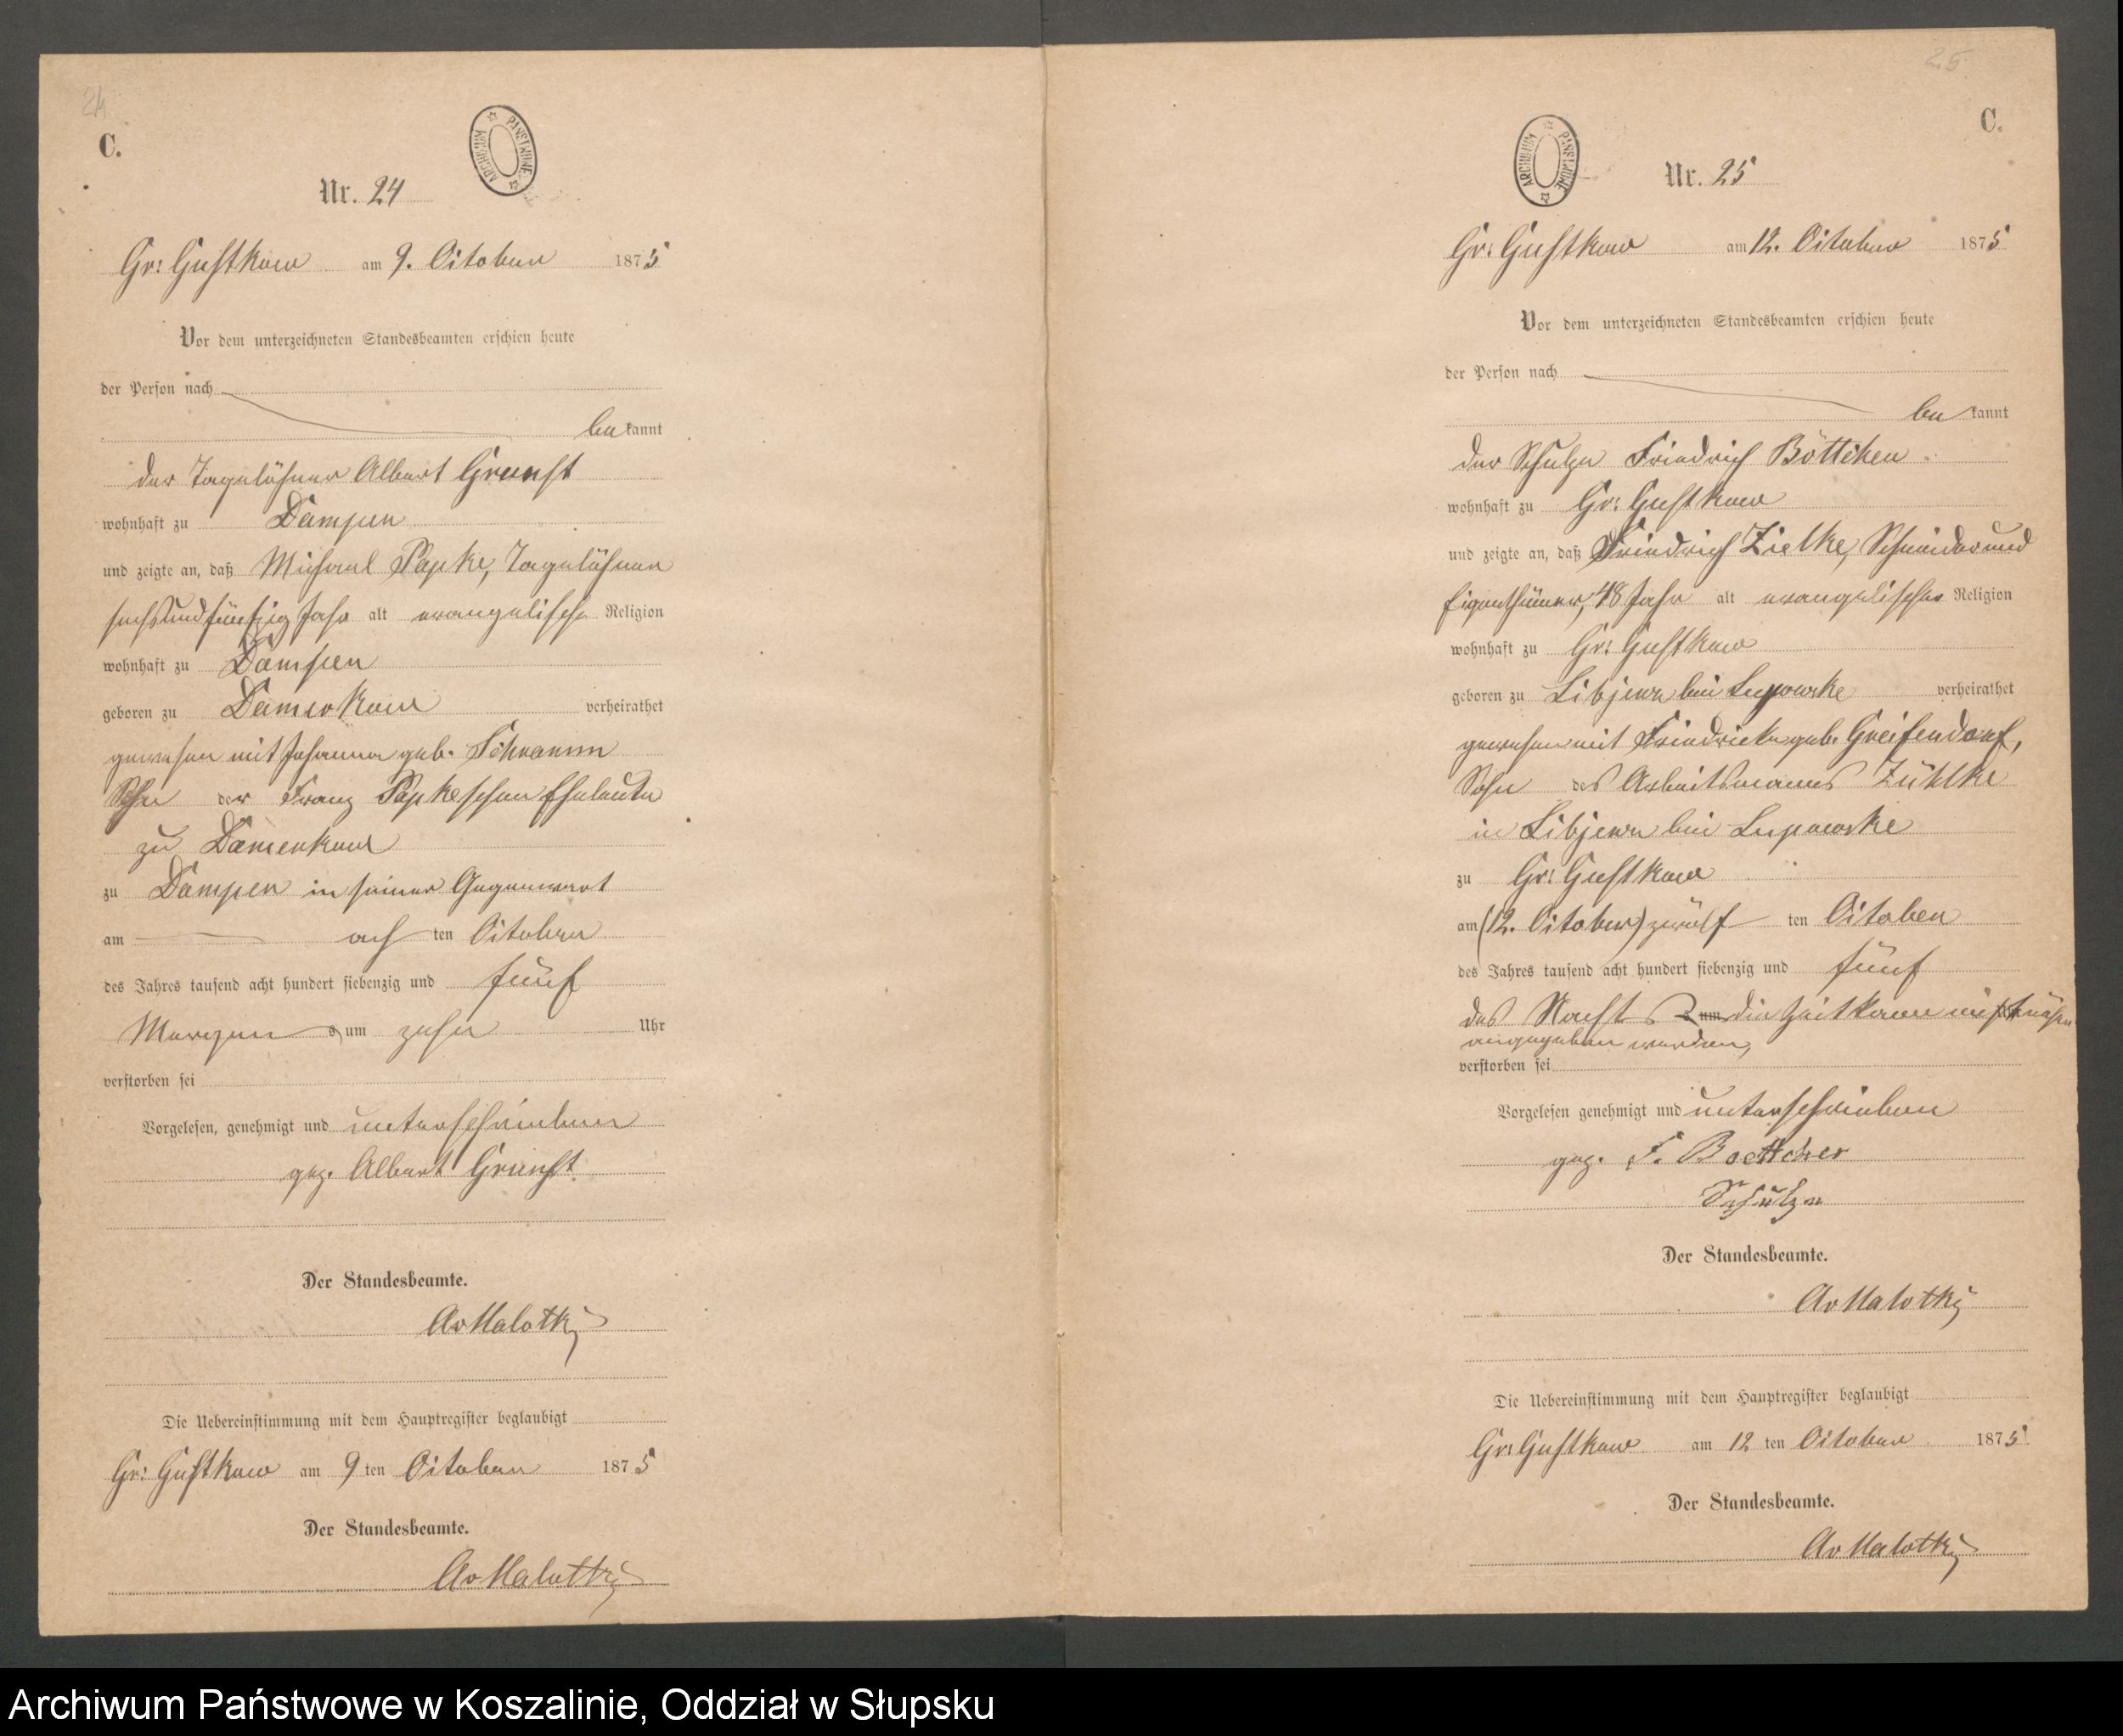 24
C.
ARCHIWUM PAŃSTWOWE
Nr. 24
Gr: Gustkow am 9. October 1875
Vor dem unterzeichneten Standesbeamten erschien heute
der Person nach
bekannt
der Tagelöhner Albert Grunst
wohnhaft zu Dampen
und zeigte an, daß Michael Papke, Tagelöhner
sechsundfünfzig Jahr alt evangelische Religion
wohnhaft zu Dampen
geboren zu Damerkow verheirathet
gewesen mit Johanna geb. Schramm
Sohn der Franz Papkeschen Eheleute
zu Damerkow
zu Dampen in seiner Gegenwart
am ach ten October
des Jahres tausend acht hundert siebenzig und fünf
Morgens um zehn Uhr
verstorben sei
Vorgelesen, genehmigt und unterschrieben
gez. Albert Grunst
Der Standesbeamte.
AvMalotky
Die Uebereinstimmung mit dem Hauptregister beglaubigt
Gr: Gustkow am 9 ten October 1875
Der Standesbeamte.
AvMalotky
25
C.
ARCHIWUM PAŃSTWOWE
Nr. 25
Gr: Gustkow am 12. October 1875
Vor dem unterzeichneten Standesbeamten erschien heute
der Person nach
bekannt
der Schulze Friedrich Böttcher
wohnhaft zu Gr: Gustkow
und zeigte an, daß Friedrich Zielke, Schneider und
Eigenthümer, 48 Jahr alt evangelischer Religion
wohnhaft zu Gr: Gustkow
geboren zu bei Lupowske verheirathet
gewesen mit Friedricke geb. Greifendorf,
Sohn des Arbeitsmannes Zühlke
in bei Lupowske
zu Gr: Gustkow
am (12. October) zwölf ten October
des Jahres tausend acht hundert siebenzig und fünf
des Nachts um die Zeit kann nicht
angegeben werden,
verstorben sei
Vorgelesen genehmigt und unterschrieben
gez. F. Boettcher
Schulze
Der Standesbeamte.
AvMalotky
Die Uebereinstimmung mit dem Hauptregister beglaubigt
Gr: Gustkow am 12 ten October 1875
Der Standesbeamte.
AvMalotky
Archiwum Państwowe w Koszalinie, Oddział w Słupsku